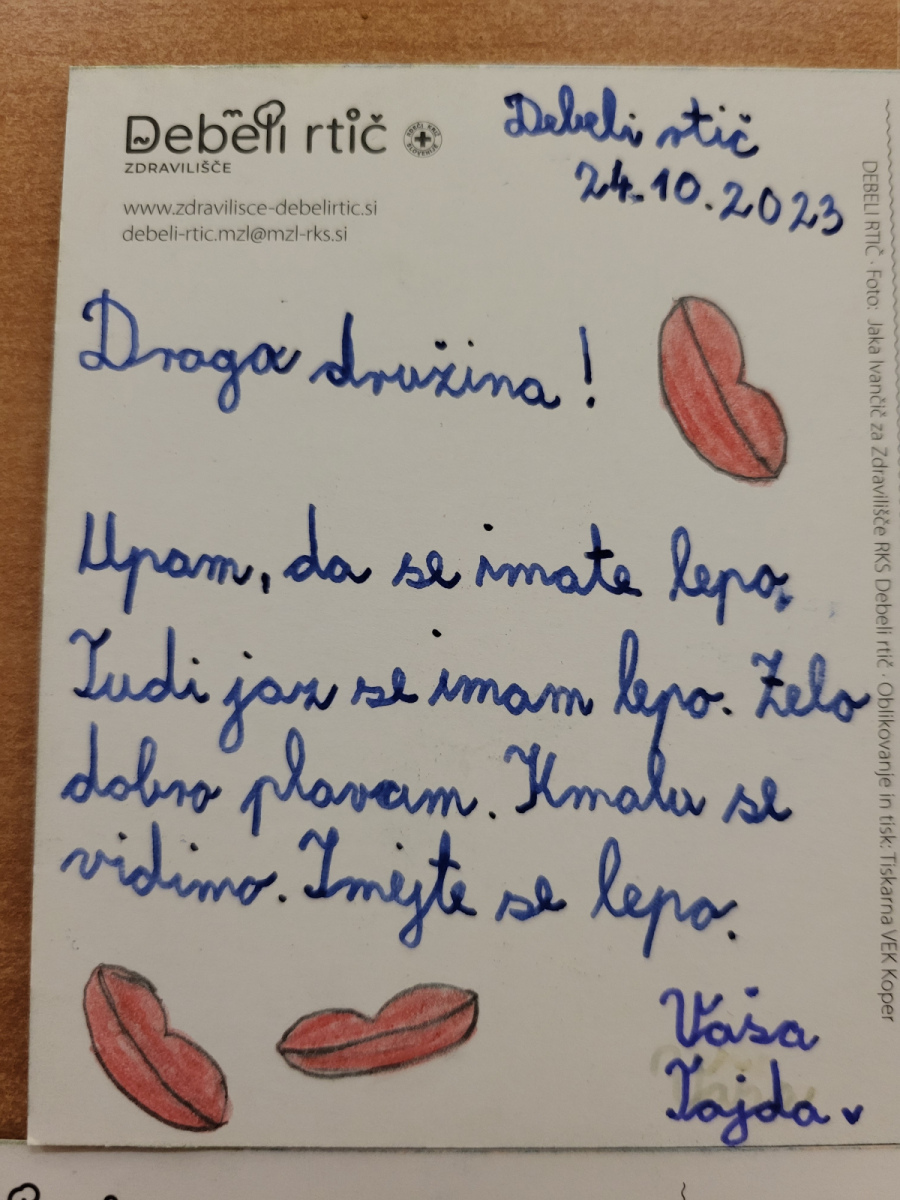 Debeli rtič
ZDRAVILIŠČE
www.zdravilisce-debelirtic.si
debeli-rtic.mzl@mzl-rks.si
Debeli rtič
24.10.2023
Draga družina!
Upam, da se imate lepo.
Tudi jaz se imam lepo. Zelo
dobro plavam. Kmalu se
vidimo. Imejte se lepo.
Vaša
Tajda
DEBELI RTIČ · Foto: Jaka Ivančič za Zdravilišče RKS Debeli rtič · Oblikovanje in tisk: Tiskarna VEK Koper